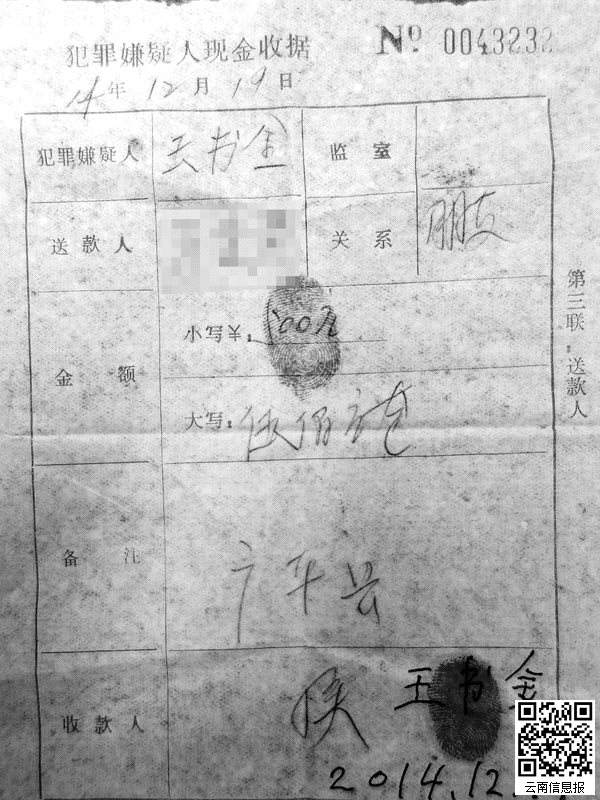 犯罪嫌疑人现金收据
№ 0043232
14年12月19日
犯罪嫌疑人 王书金 监室
送款人 关系 朋友
金额 小写¥:500元
大写:伍佰元
备注 广平县
第三联:送款人
收款人 王书金
2014.12.
云南信息报